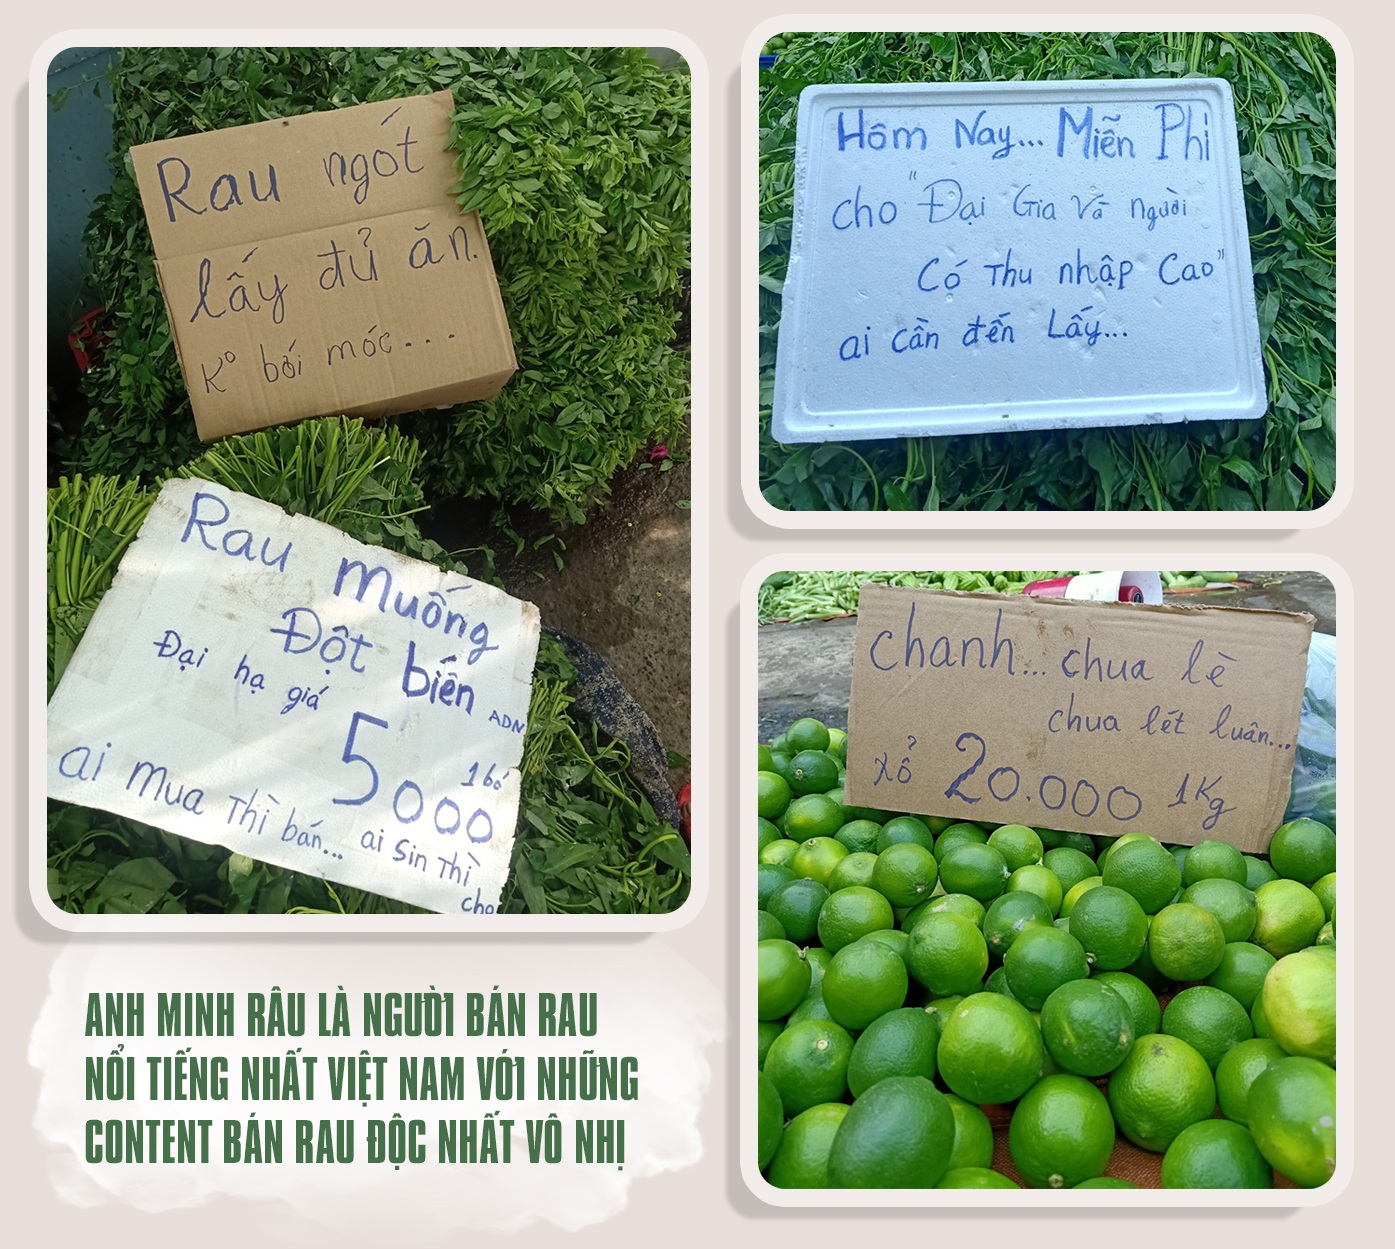 Rau ngót
lấy đủ ăn.
K° bới móc...
Rau muống
Đột biến
ADN
Đại hạ giá
5000
1 bó
ai mua Thì bán... ai Sin Thì
cho
Hôm Nay... Miễn Phí
cho "Đại Gia Và người
Có Thu nhập Cao"
ai cần đến Lấy...
chanh... chua lè
chua lét luân...
xổ 20.000 1Kg
ANH MINH RÂU LÀ NGƯỜI BÁN RAU
NỔI TIẾNG NHẤT VIỆT NAM VỚI NHỮNG
CONTENT BÁN RAU ĐỘC NHẤT VÔ NHỊ